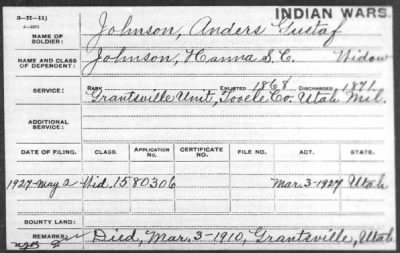 3-II-11)
INDIAN WARS.
NAME OF SOLDIER: Johnson, Anders Gustaf
NAME AND CLASS OF DEPENDENT: Johnson, Hanna S. C. Widow
SERVICE: RANK ENLISTED 1868 DISCHARGED 1871
Grantsville Unit, Tooele Co. Utah Mil.
ADDITIONAL SERVICE:
DATE OF FILING. CLASS. APPLICATION No. CERTIFICATE No. FILE NO. ACT. STATE.
1927-May 2 Wid. 1580306 Mar. 3-1927 Utah
BOUNTY LAND:
REMARKS: Died, Mar. 3-1910, Grantsville, Utah